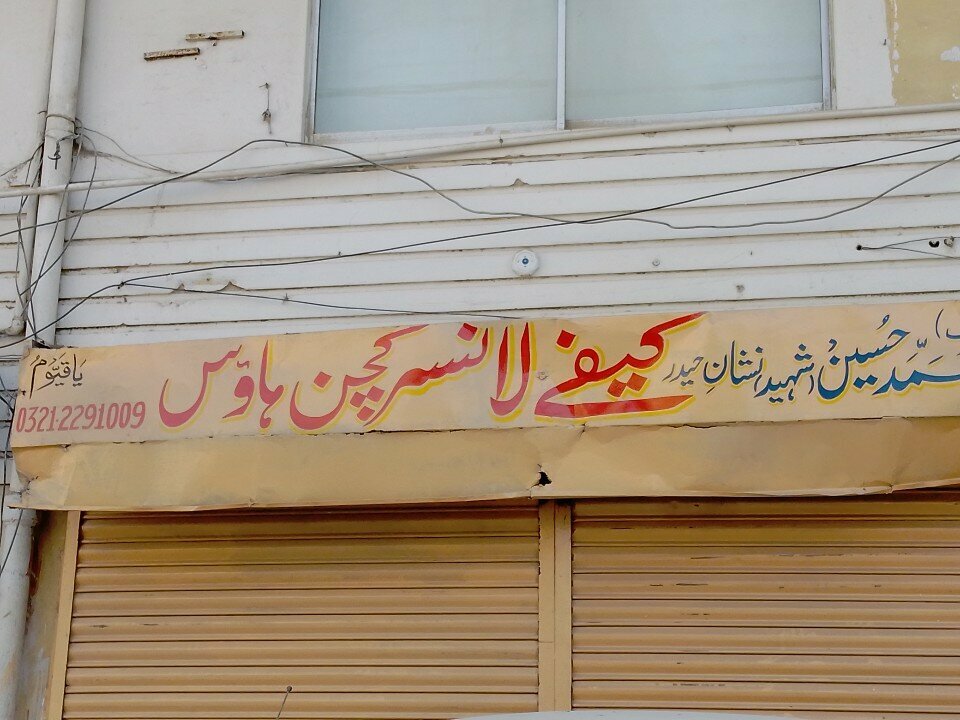 محمّد حُسین (شہید) نشانِ حیدر
کیفے لانسر کچن ہاؤس
یَا قیّومُ
0321-2291009